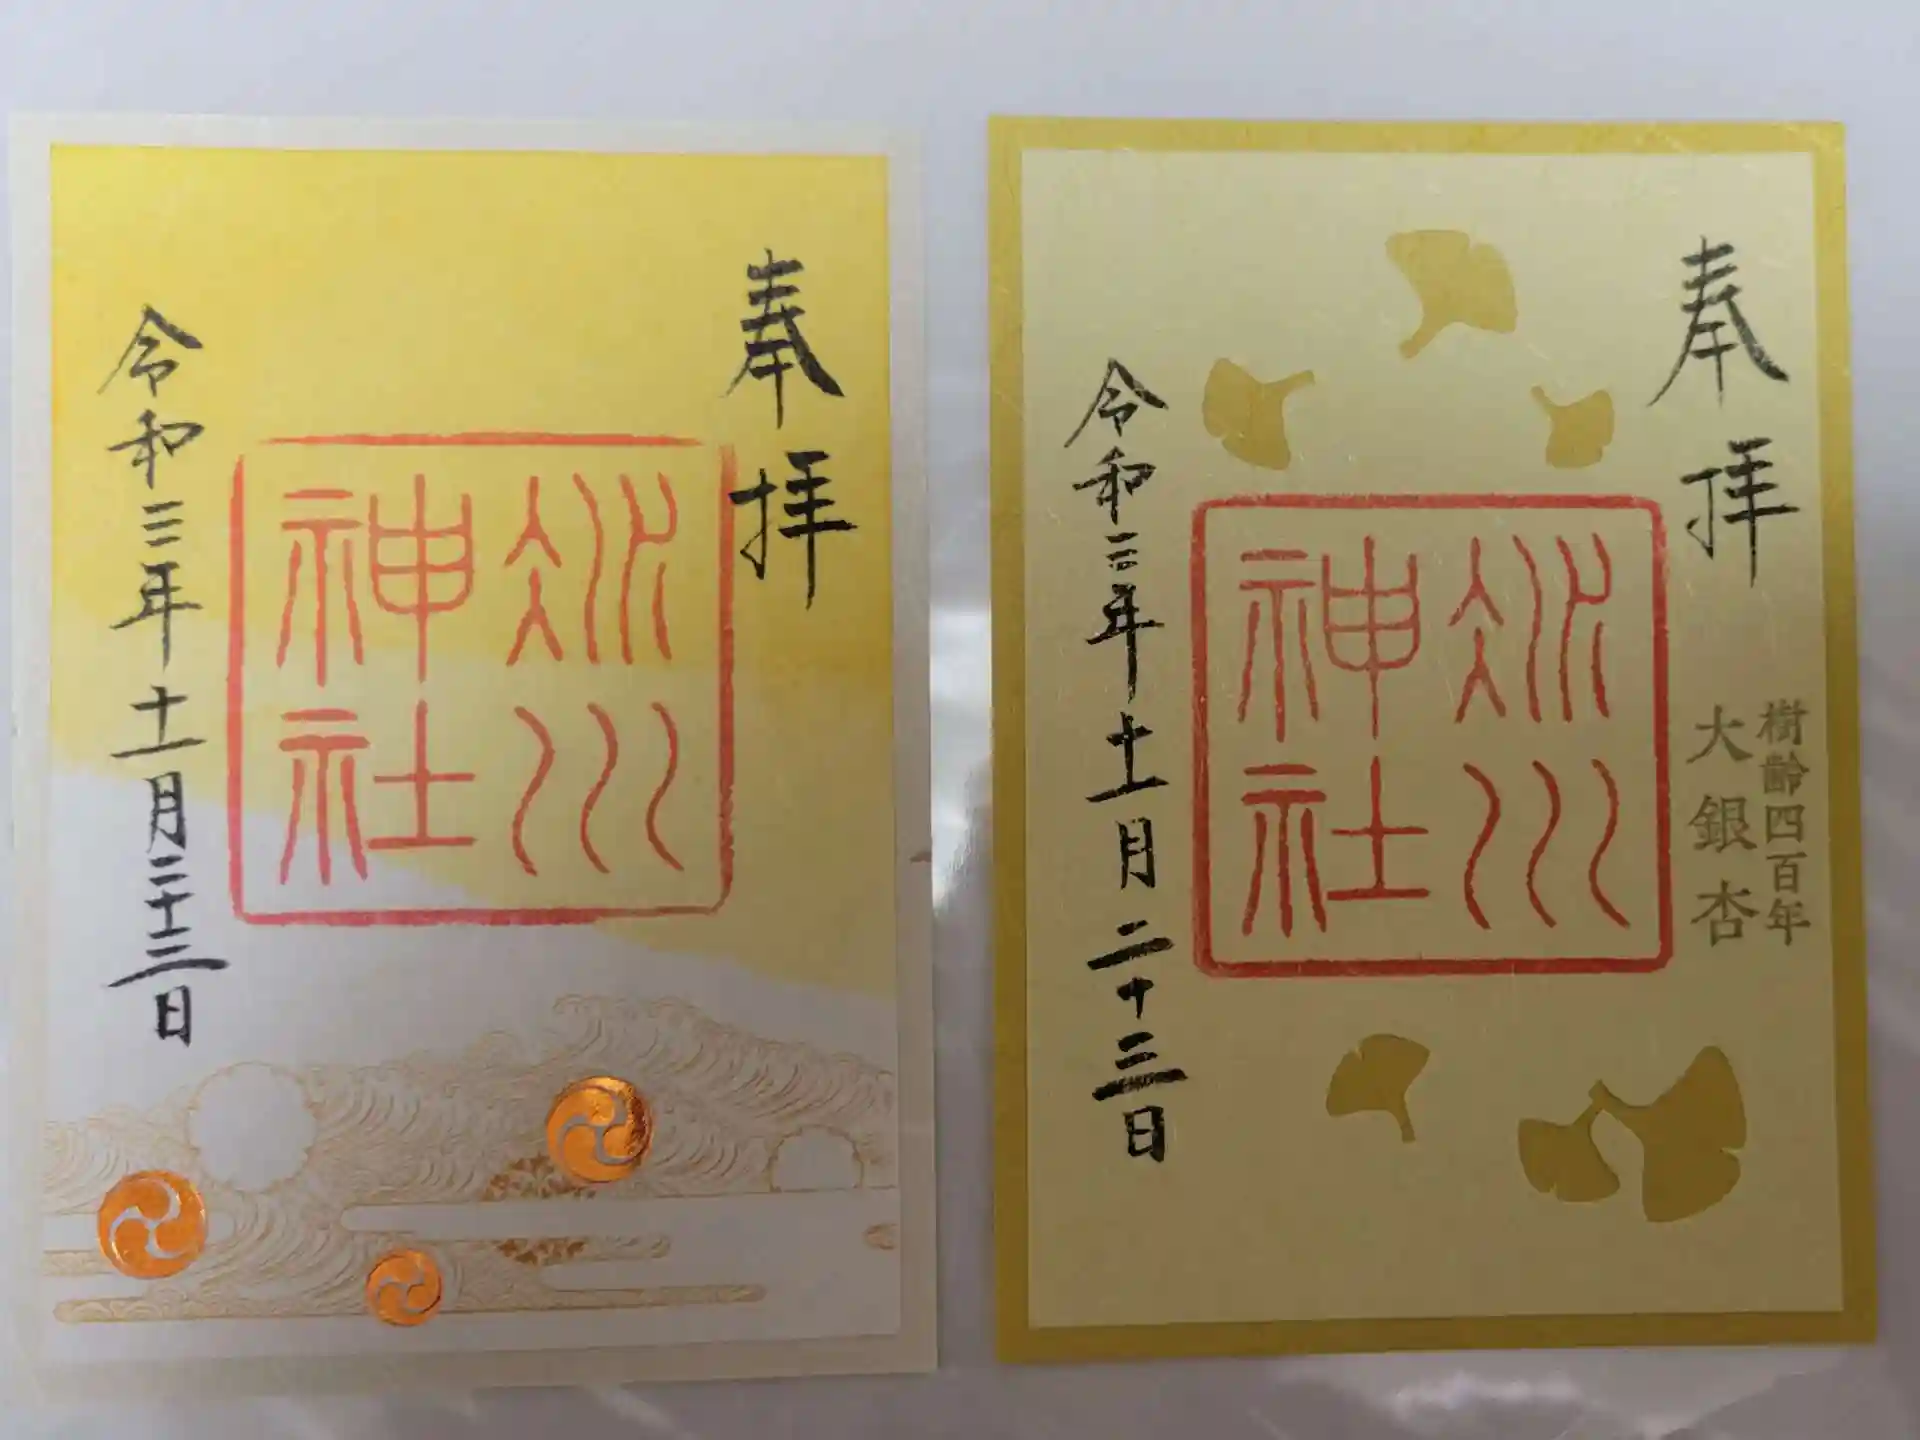 奉拝
冰川
神社
令和三年十一月二十三日
奉拝
樹齢四百年
大銀杏
冰川
神社
令和三年十一月二十三日